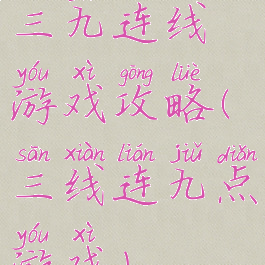 三九连线
yóu xì gōng lüè
游戏攻略(
sān xiàn lián jiǔ diǎn
三线连九点
yóu xì
游戏)